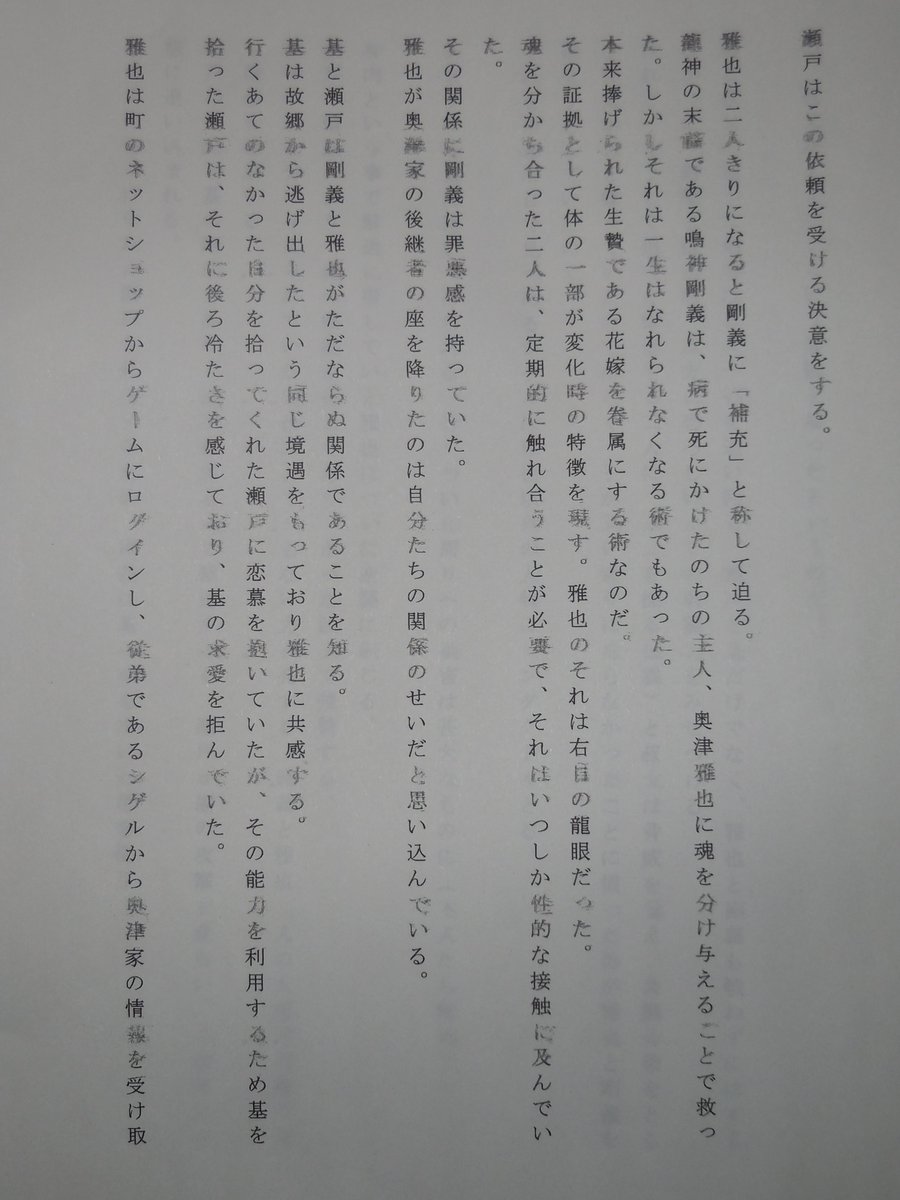 瀬戸はこの依頼を受ける決意をする。
雅也は二人きりになると剛義に「補充」と称して迫る。
龍神の末裔である鳴神剛義は、病で死にかけたのちの主人、奥津雅也に魂を分け与えることで救っ
た。しかしそれは一生はなれられなくなる術でもあった。
本来捧げられた生贄である花嫁を眷属にする術なのだ。
その証拠として体の一部が変化時の特徴を現す。雅也のそれは右目の龍眼だった。
魂を分かち合った二人は、定期的に触れ合うことが必要で、それはいつしか性的な接触に及んでい
た。
その関係に剛義は罪悪感を持っていた。
雅也が奥津家の後継者の座を降りたのは自分たちの関係のせいだと思い込んでいる。
基と瀬戸は剛義と雅也がただならぬ関係であることを知る。
基は故郷から逃げ出したという同じ境遇をもっており雅也に共感する。
行くあてのなかった自分を拾ってくれた瀬戸に恋慕を抱いていたが、その能力を利用するため基を
拾った瀬戸は、それに後ろ冷たさを感じており、基の求愛を拒んでいた。
雅也は町のネットショップからゲームにログインし、従弟であるシゲルから奥津家の情報を受け取